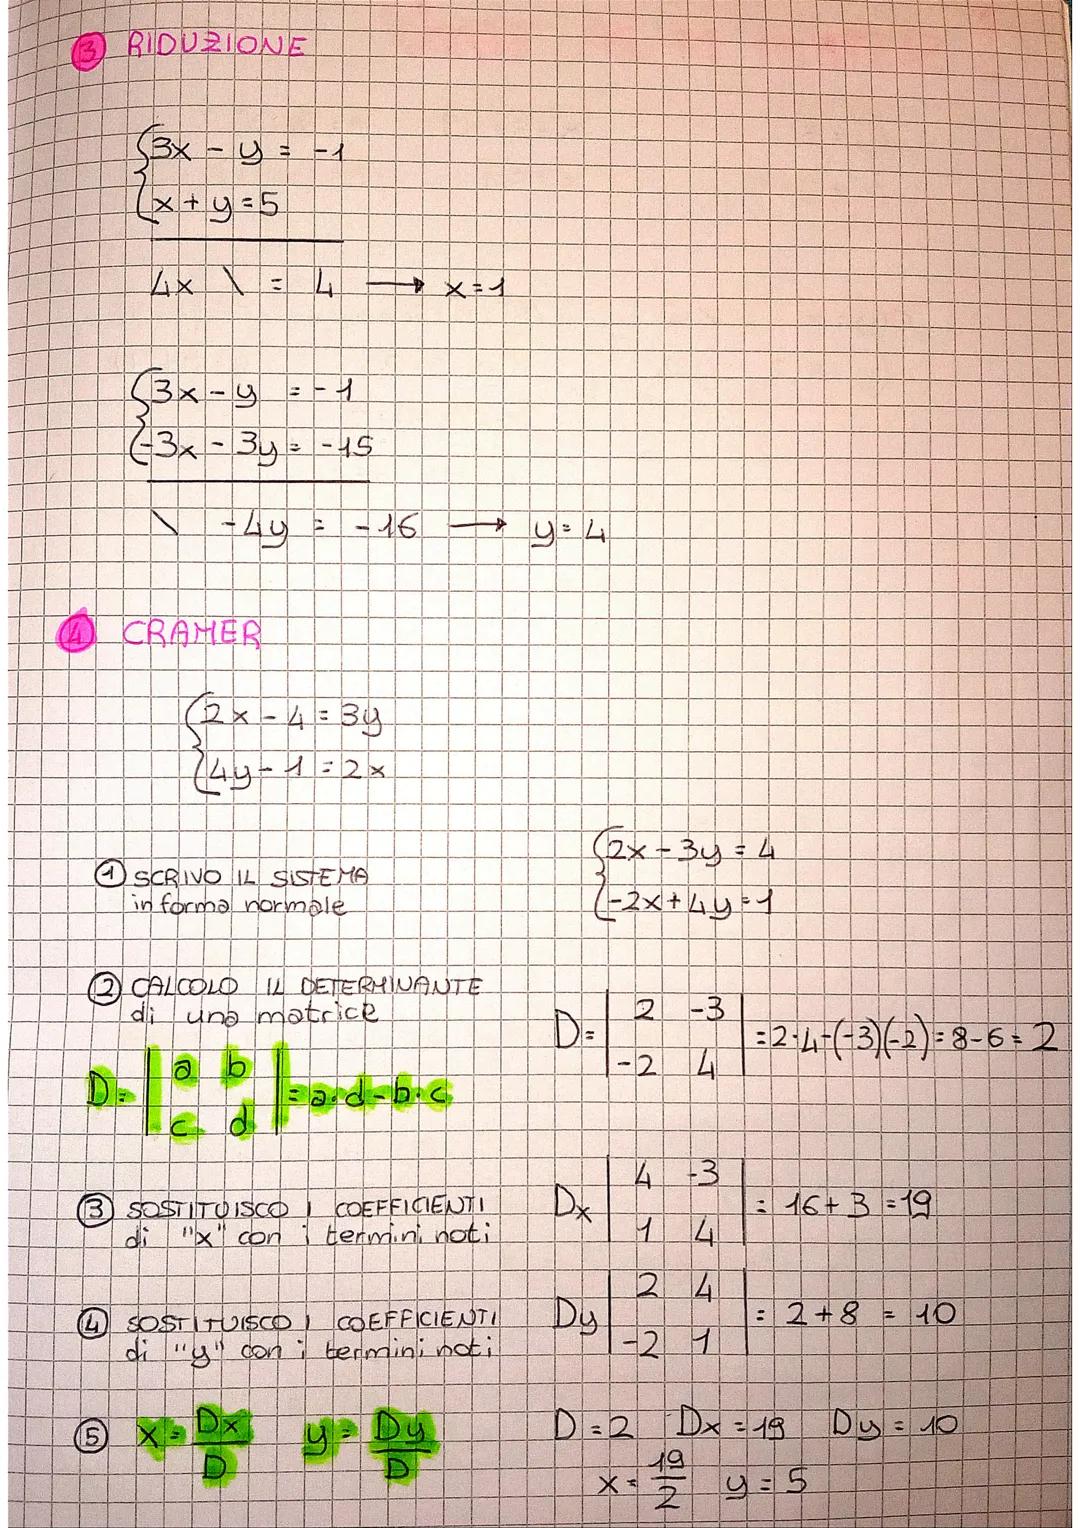 3 RIDUZIONE
{3x - y = -1
{x + y = 5
4x \ = 4 → x = 1
{3x - y = -1
{-3x - 3y = -15
\ -4y = -16 → y = 4
4 CRAMER
{2x - 4 = 3y
{4y - 1 = 2x
① SCRIVO IL SISTEMA
in forma normale
{2x - 3y = 4
{-2x + 4y = 1
② CALCOLO IL DETERMINANTE
di una matrice
D = | a b |
| c d | = a·d - b·c
D = | 2 -3 |
| -2 4 | = 2·4-(-3)(-2) = 8 - 6 = 2
③ SOSTITUISCO I COEFFICIENTI
di "x" con i termini noti
Dx | 4 -3 |
| 1 4 | = 16 + 3 = 19
④ SOSTITUISCO I COEFFICIENTI
di "y" con i termini noti
Dy | 2 4 |
| -2 1 | = 2 + 8 = 10
⑤ x = Dx/D y = Dy/D
D = 2 Dx = 19 Dy = 10
x = 19/2 y = 5